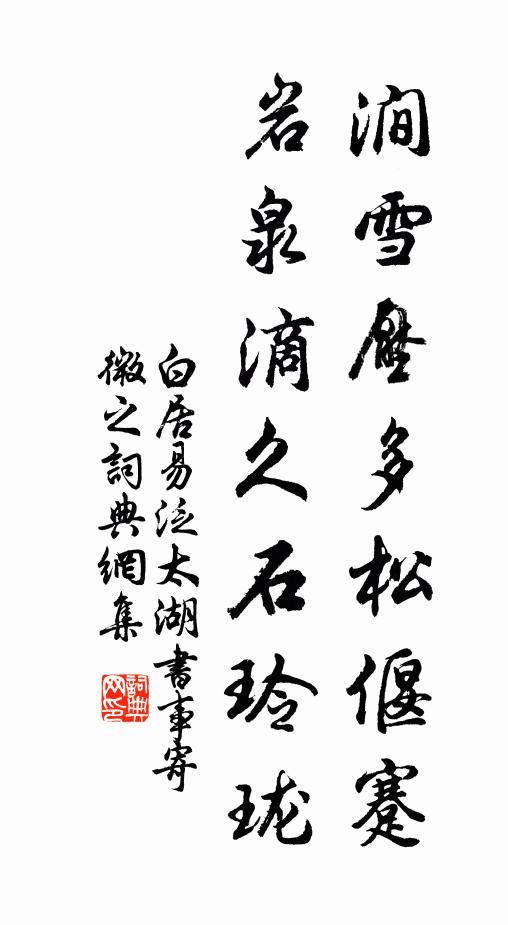 澗雪壓多松偃蹇
岩泉滴久石玲珑
白居易泛太湖書事寄
微之詞典網集
詞典网印